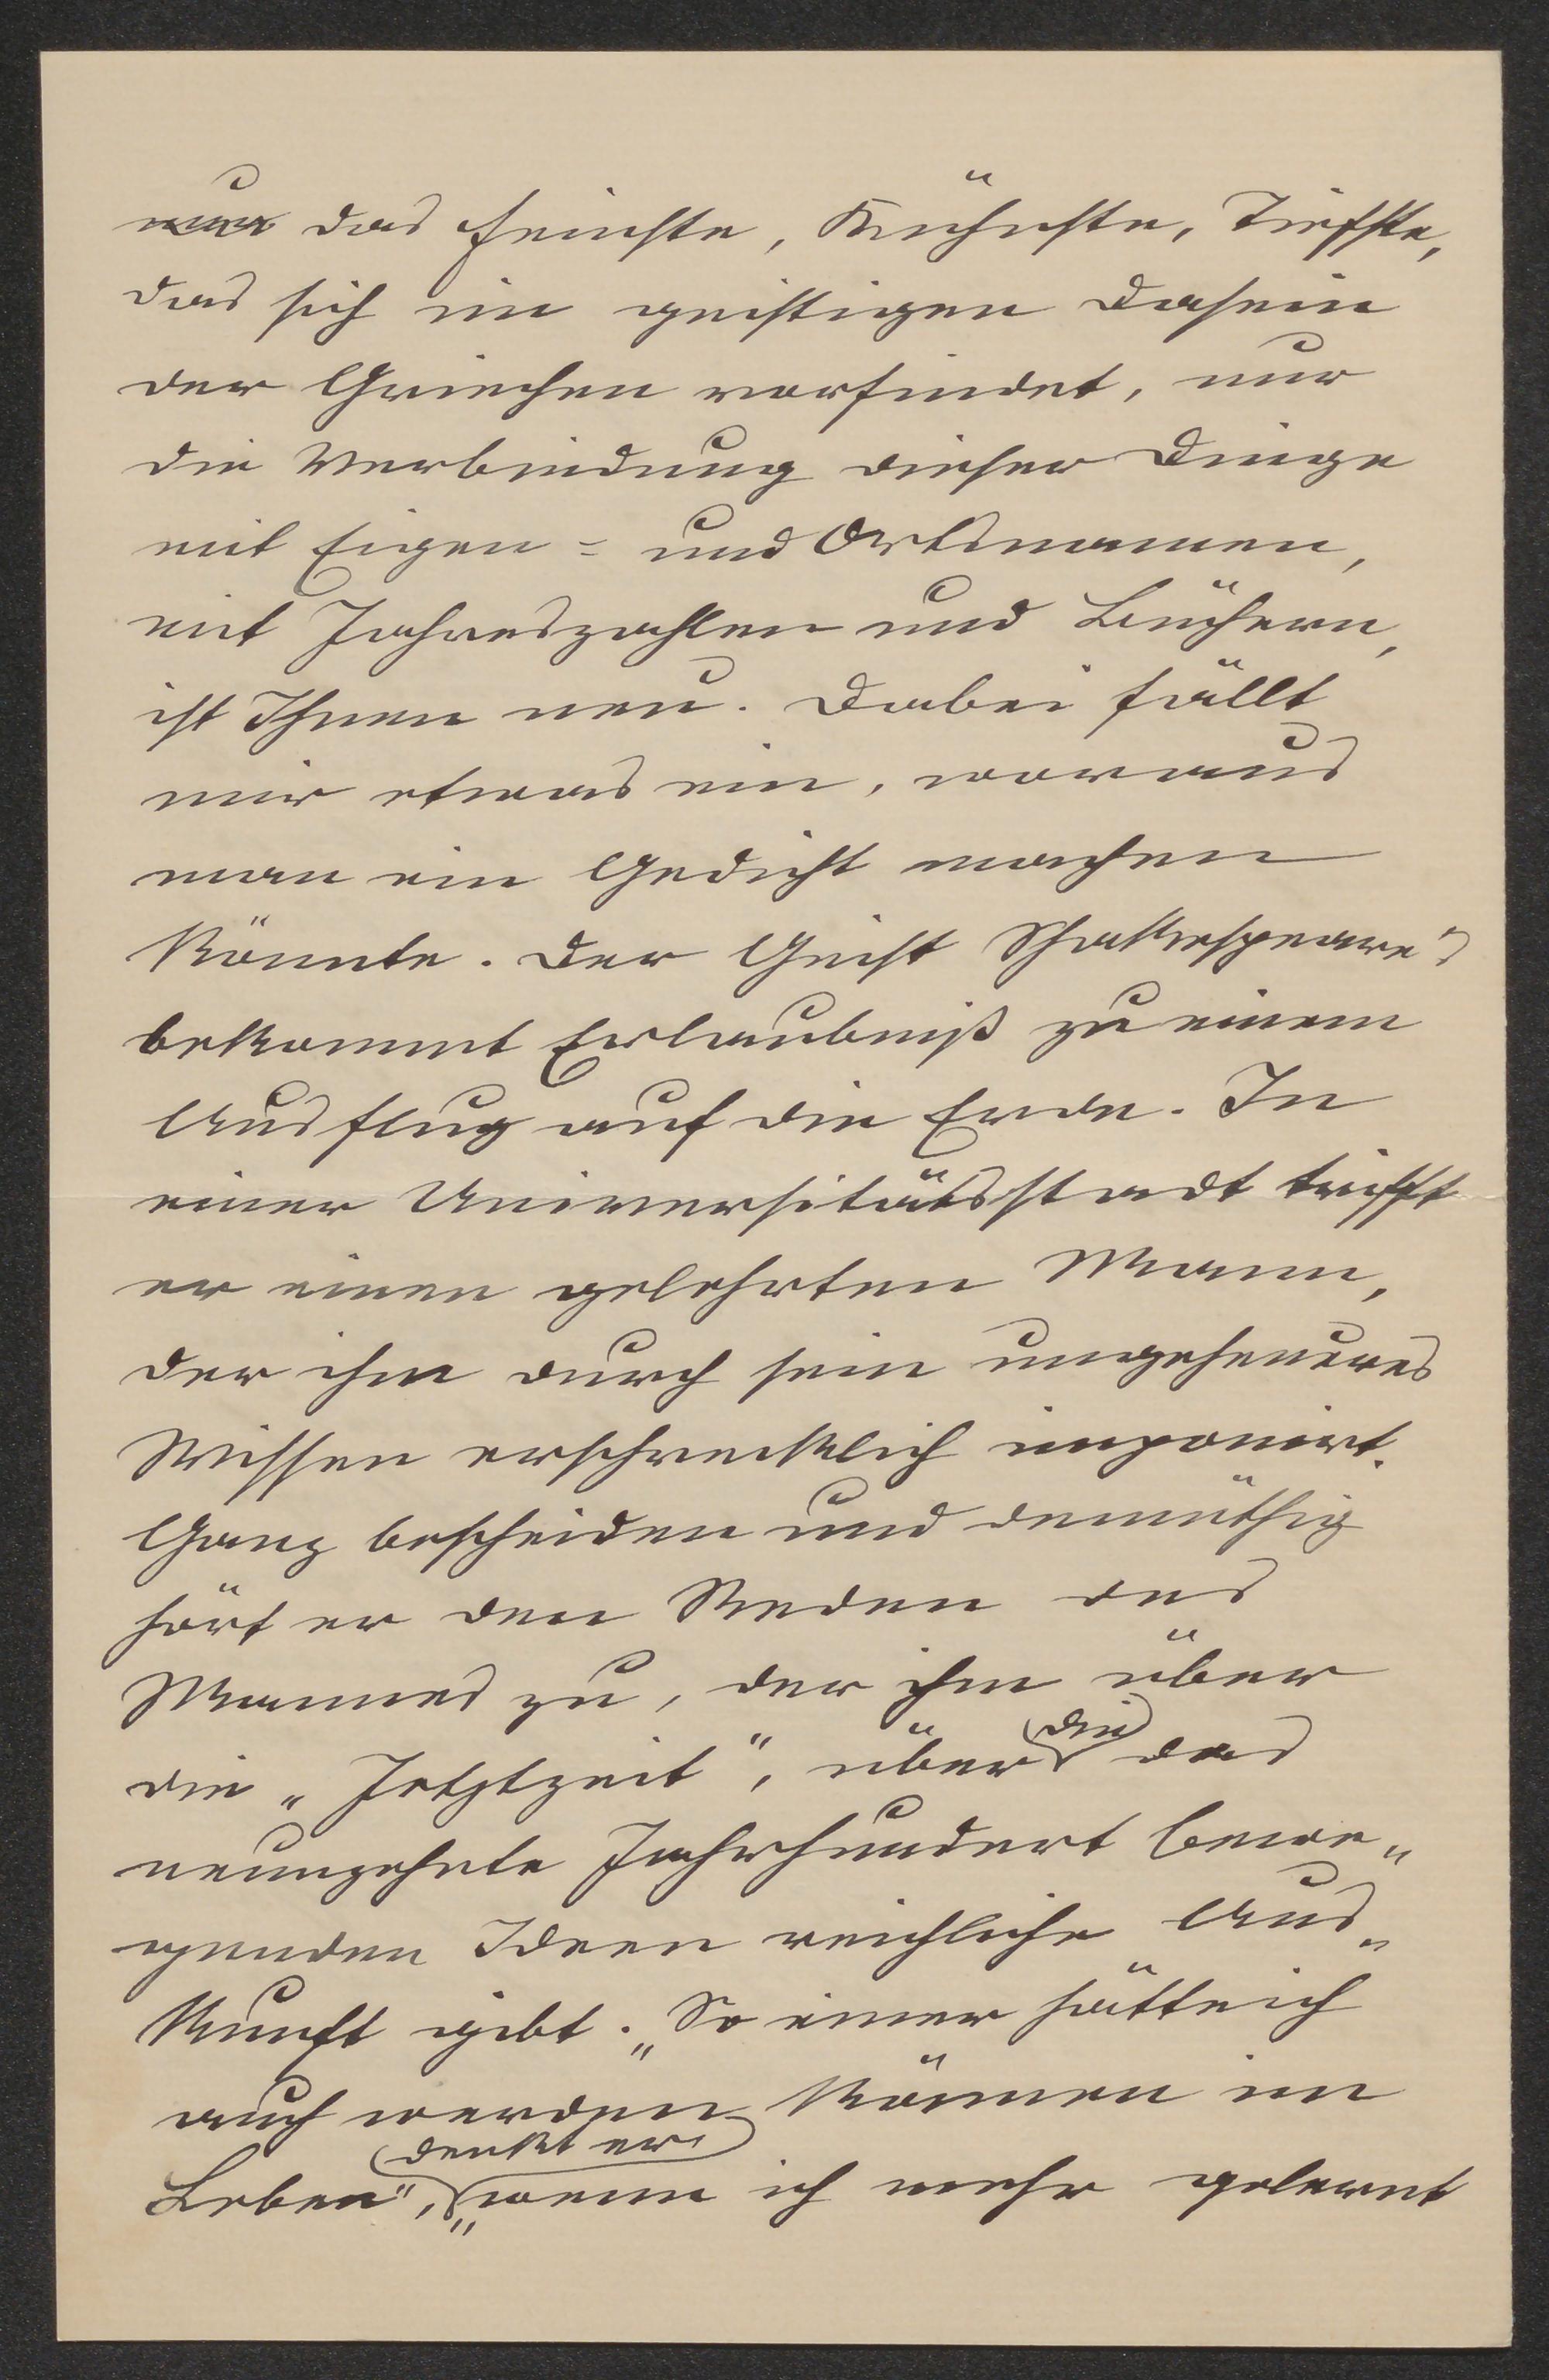 nur das feinste, Kühnste, Tiefste,
das sich im geistigen Dasein
der Griechen vorfindet, nur
die Verbindung dieser Dinge
mit Eigen= und Ortsnamen,
mit Jahreszahlen und Büchern,
ist Ihnen neu. Dabei fällt
mir etwas ein, woraus
man ein Gedicht machen
könnte. Der Geist Shakespeare's
bekommt Erlaubniß zu einem
Ausflug auf die Erde. In
einer Universitätsstadt trifft
er einen gelehrten Mann,
der ihm durch sein ungeheueres
Wissen erschrecklich imponirt.
Ganz bescheiden und demüthig
hört er den Reden des
Mannes zu, der ihm über
die „Jetztzeit", über die das
neunzehnte Jahrhundert bewe„
genden Ideen reichliche Aus„
kunft gibt. „So einer hätte ich
auch werden können im
Leben", denkt er, „wenn ich mehr gelernt